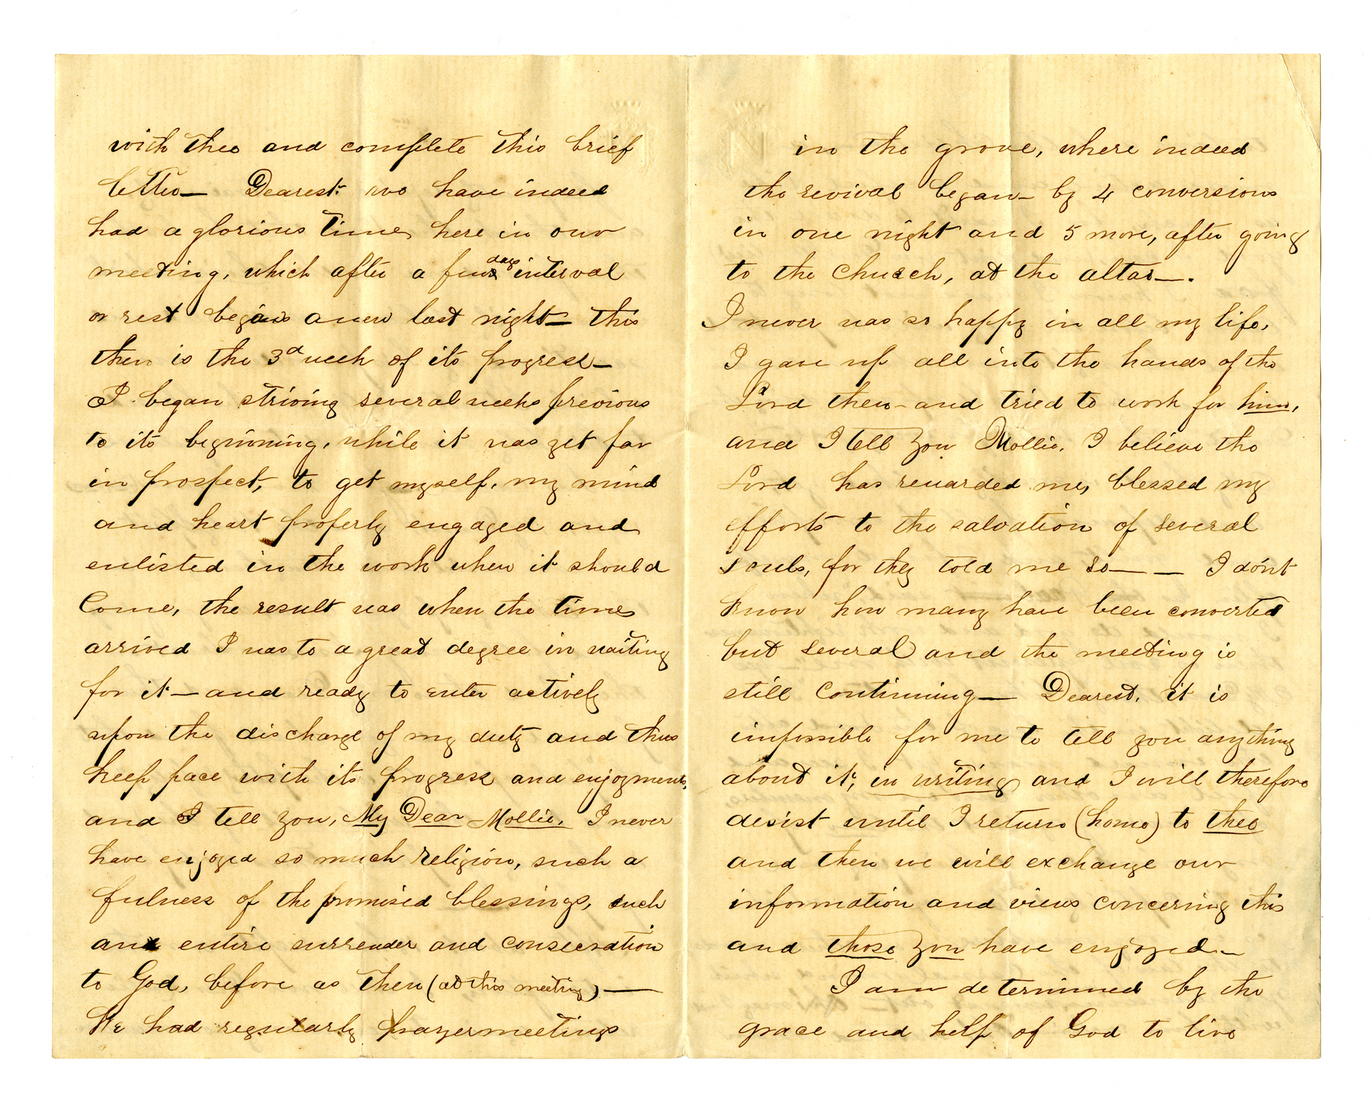 with thee and complete this brief
letter— Dearest: we have indeed
had a glorious time, here in our
meeting, which after a few days interval
or rest began anew last night— this
then is the 3d week of its progress—
I began striving several weeks previous
to its beginning, while it was yet far
in prospect, to get myself, my mind
and heart properly engaged and
enlisted in the work when it should
Come, the result was when the time
arrived I was to a great degree in waiting
for it— and ready to enter actively
upon the discharge of my duty and thus
keep pace with its progress and enjoyment,
and I tell you, My Dear Mollie, I never
have enjoyed so much religion, such a
fulness of the promised blessings, such
an entire surrender and consecration
to God, before as then (at this meeting)—
We had regularly prayermeetings
in the grove, where indeed
the revival began— by 4 conversions
in one night and 5 more, after going
to the Church, at the altar—.
I never was so happy in all my life,
I gave up all into the hands of the
Lord then—and tried to work for him,
and I tell you Mollie, I believe the
Lord has rewarded me, blessed my
efforts to the salvation of several
souls, for they told me so— — I don't
know how many have been converted
but several and the meeting is
still continuing— Dearest, it is
impossible for me to tell you anything
about it, in writing and I will therefore
desist until I return (home) to thee
and then we will exchange our
information and views concerning this
and those you have enjoyed—
I am determined by the
grace and help of God to live